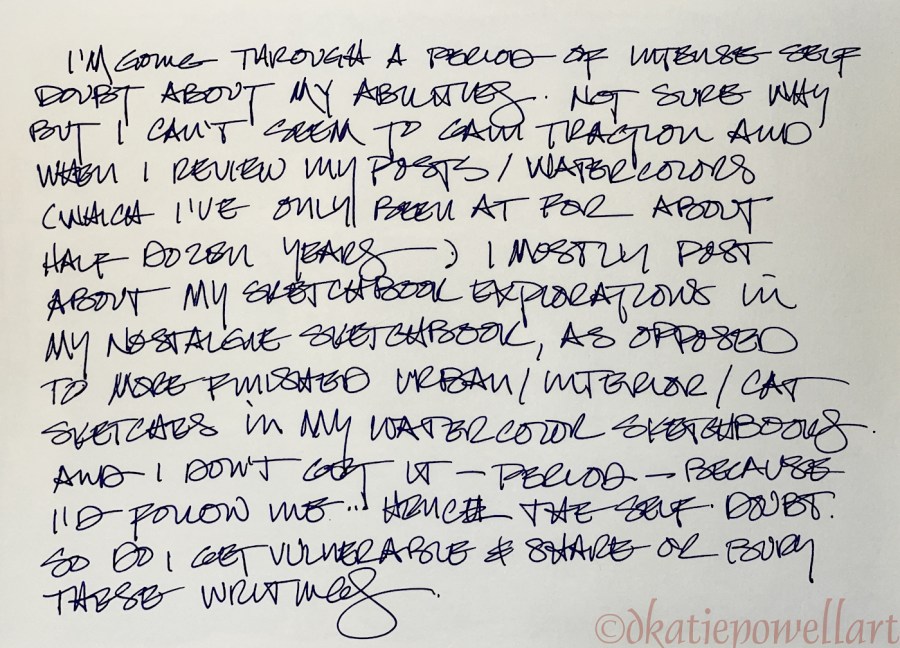 I'M GOING THROUGH A PERIOD OF INTENSE SELF
DOUBT ABOUT MY ABILITIES. NOT SURE WHY
BUT I CAN'T SEEM TO GAIN TRACTION AND
WHEN I REVIEW MY POSTS / WATERCOLORS
(WHICH I'VE ONLY BEEN AT FOR ABOUT
HALF DOZEN YEARS) I MOSTLY POST
ABOUT MY SKETCHBOOK EXPLORATIONS in
MY NOSTALGIE SKETCHBOOK, AS OPPOSED
TO MORE FINISHED URBAN / INTERIOR / CAT
SKETCHES in MY WATERCOLOR SKETCHBOOKS.
AND I DON'T GET IT — PERIOD — BECAUSE
I'D FOLLOW ME... HENCE THE SELF DOUBT.
SO DO I GET VULNERABLE & SHARE OR BURY
THESE WRITINGS.
©dkatiepowellart